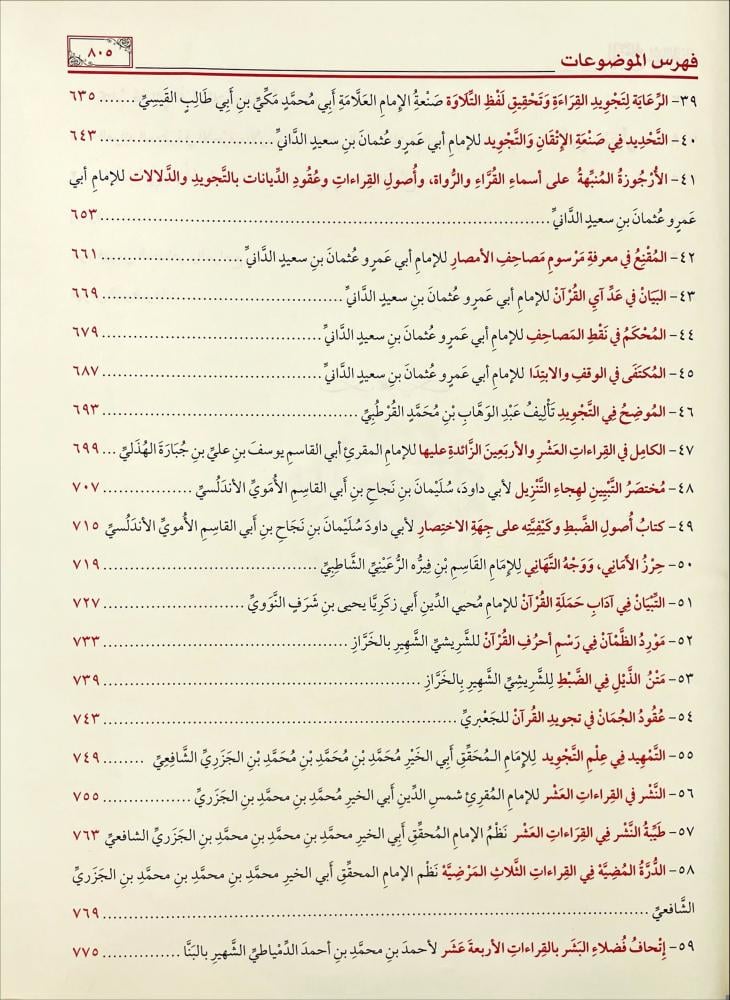 فهرس الموضوعات
٨٠٥
٣٩- الرِّعَايَة لِتَجْوِيدِ القِرَاءَةِ وَتَحْقِيقِ لَفْظِ التِّلَاوَة صَنْعَةُ الإِمَامِ العَلَّامَةِ أَبِي مُحَمَّدٍ مَكِّيِّ بنِ أَبِي طَالِبٍ القَيسِيِّ ....... ٦٣٥
٤٠- التَّحْدِيد فِي صَنْعَةِ الإِتْقَانِ وَالتَّجْوِيد للإمامِ أبي عَمرٍو عُثمانَ بنِ سعيدٍ الدَّانيِّ ............................ ٦٤٣
٤١- الأُرْجُوزَةُ المُنبِّهةُ على أسماءِ القُرَّاءِ والرُّواة، وأُصولِ القِراءاتِ وعُقُودِ الدِّيانات بالتَّجويدِ والدَّلالات للإمامِ أبي
عَمرٍو عُثمانَ بنِ سعيدٍ الدَّانيِّ ............................ ٦٥٣
٤٢- المُقْنِعُ في معرفةِ مَرْسومِ مَصَاحِفِ الأمصارِ للإمامِ أبي عَمرٍو عُثمانَ بنِ سعيدٍ الدَّانيِّ ............................ ٦٦١
٤٣- البَيَانُ في عَدِّ آيِ القُرْآنِ للإمامِ أبي عَمرٍو عُثمانَ بنِ سعيدٍ الدَّانيِّ ............................ ٦٦٩
٤٤- المُحْكَمُ في نَقْطِ المَصَاحِفِ للإمامِ أبي عَمرٍو عُثمانَ بنِ سعيدٍ الدَّانيِّ ............................ ٦٧٩
٤٥- المُكتَفَى في الوقفِ والابتِدَا للإمامِ أبي عَمرٍو عُثمانَ بنِ سعيدٍ الدَّانيِّ ............................ ٦٨٧
٤٦- المُوضِحُ فِي التَّجْوِيدِ تَأْلِيفُ عَبْدِ الوَهَّابِ بْنِ مُحَمَّدٍ القُرْطُبِيِّ ............................ ٦٩٣
٤٧- الكامِل في القِراءاتِ العَشْرِ والأربَعِينَ الزَّائدةِ عليها للإمامِ المقرئِ أبي القاسمِ يوسفَ بنِ عليِّ بنِ جُبَارَةَ الهُذَليِّ ... ٦٩٩
٤٨- مُختصَرُ التَّبْيِينِ لهِجاءِ التَّنْزِيل لأبي داودَ، سُلَيْمانَ بنِ نَجاحِ بنِ أبي القاسِمِ الأُمَوِيِّ الأندَلُسيِّ ................ ٧٠٧
٤٩- كتابُ أُصولِ الضَّبطِ وكَيْفِيَّتِه على جِهَةِ الاختِصارِ لأبي داودَ سُلَيْمانَ بنِ نَجاحِ بنِ أبي القاسِمِ الأُمويِّ الأندلُسيِّ ٧١٥
٥٠- حِرْزُ الأَمَانِي، وَوَجْهُ التَّهَانِي لِلإِمَامِ القَاسِمِ بْنِ فِيرُّه الرُّعَيْنِيِّ الشَّاطِبِيِّ ............................ ٧١٩
٥١- التِّبْيَان فِي آدَابِ حَمَلَةِ القُرْآنْ للإمامِ مُحيي الدِّينِ أبي زكرِيَّا يحيى بنِ شَرَفٍ النَّوَويِّ ........................ ٧٢٧
٥٢- مَوْرِدُ الظَّمْآن فِي رَسْمِ أحرُفِ القُرْآنْ للشَّريشيِّ الشَّهيرِ بالخَرَّازِ ............................ ٧٣٣
٥٣- مَتْنُ الذَّيْلِ فِي الضَّبْطِ لِلشَّرِيشِيِّ الشَّهِيرِ بِالخَرَّازِ ............................ ٧٣٩
٥٤- عُقُودُ الجُمَان في تجويدِ القرآنْ للجَعْبريِّ ............................ ٧٤٣
٥٥- التَّمْهِيد فِي عِلْمِ التَّجْوِيد لِلإِمَامِ المُحَقِّقِ أَبِي الخَيْرِ مُحَمَّدِ بْنِ مُحَمَّدِ بْنِ مُحَمَّدِ بْنِ الجَزَرِيِّ الشَّافِعِيِّ ........ ٧٤٩
٥٦- النَّشْر في القِراءاتِ العَشْر للإمامِ المُقرئِ شمسِ الدِّينِ أبي الخيرِ مُحمَّدِ بنِ محمدِ بنِ الجَزَريِّ ................ ٧٥٥
٥٧- طَيِّبَةُ النَّشْرِ فِي القِرَاءَاتِ العَشْرِ نَظْمُ الإمامِ المُحقِّقِ أبي الخيرِ محمدِ بنِ محمدِ بنِ محمدِ بنِ الجَزَريِّ الشافعيِّ ٧٦٣
٥٨- الدُّرَّةُ المُضِيَّة فِي القِراءاتِ الثَّلاثِ المَرْضِيَّة نَظْم الإمامِ المحقِّقِ أبي الخيرِ محمدِ بنِ محمدِ بنِ محمدِ بنِ الجَزَريِّ
الشَّافعيِّ ............................ ٧٦٩
٥٩- إِتْحافُ فُضلاءِ البَشَر بالقِراءاتِ الأربعةَ عَشَر لأحمدَ بنِ محمدِ بنِ أحمدَ الدِّمْياطيِّ الشَّهيرِ بالبَنَّا ............... ٧٧٥